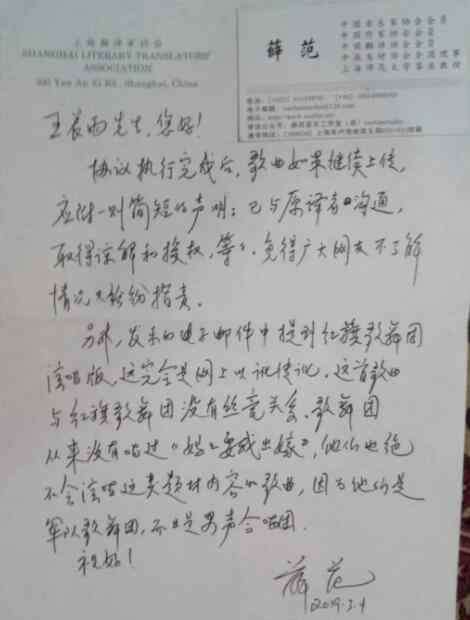 上海翻译家协会
SHANGHAI LITERARY TRANSLATORS'
ASSOCIATION
Shanghai, China
薛范
中国音乐家协会会员
中国作家协会会员
中国翻译协会会员
上海师范大学客座教授
王长雨先生，您好！
协议执行完成后，歌曲如果继续上传，
应附一则简短的声明：已与原译者沟通，
取得谅解和授权，等等，免得广大网友不了解
情况又纷纷指责。
另外，发来的电子邮件中提到红旗歌舞团
演唱版，这完全是网上以讹传讹，这首歌曲
与红旗歌舞团没有丝毫关系。歌舞团
从来没有唱过《妈妈要我出嫁》，他们也绝
不会演唱这类题材内容的歌曲，因为他们是
军队歌舞团，而且是男声合唱团。
祝好！
薛范
2019.3.4